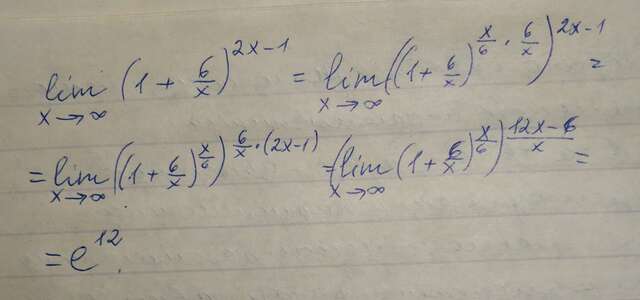 lim x→∞ (1 + 6/x)^(2x-1) = lim x→∞ ((1 + 6/x)^(x/6 · 6/x))^(2x-1) =
= lim x→∞ ((1 + 6/x)^(x/6))^(6/x·(2x-1)) = lim x→∞ (1 + 6/x)^(x/6))^((12x-6)/x) =
= e^12.